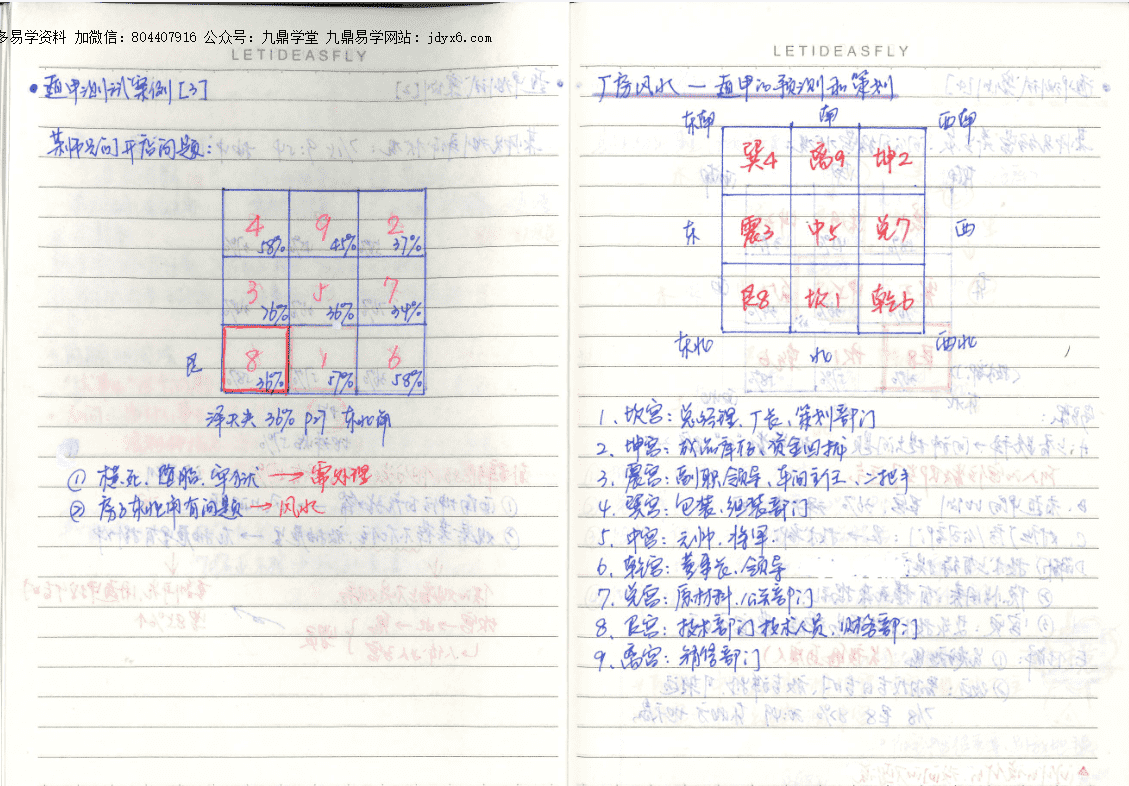 多易学资料 加微信：804407916 公众号：九鼎学堂 九鼎易学网站：jdyx6.com
LETIDEASFLY
• 遁甲测试案例[3]
某师兄问开店问题：
4 9 2
58% 45% 37%
3 5 7
76% 36% 34%
艮 8 1 6
36% 57% 58%
泽天夬 36% P27 东北角
① 横死、堕胎、牢狱 → 需处理
② 房子东北角有问题 → 风水
LETIDEASFLY
厂房风水 — 遁甲的预测和策划
东南 南 西南
巽4 离9 坤2
东 震3 中5 兑7 西
艮8 坎1 乾6
东北 北 西北
1. 坎宫：总经理、厂长、策划部门
2. 坤宫：成品库存、资金回拢
3. 震宫：副职领导、车间主任、二把手
4. 巽宫：包装、组装部门
5. 中宫：元帅、将军
6. 乾宫：董事长、领导
7. 兑宫：原材料、公关部门
8. 艮宫：技术部门 技术人员、财务部门
9. 离宫：销售部门